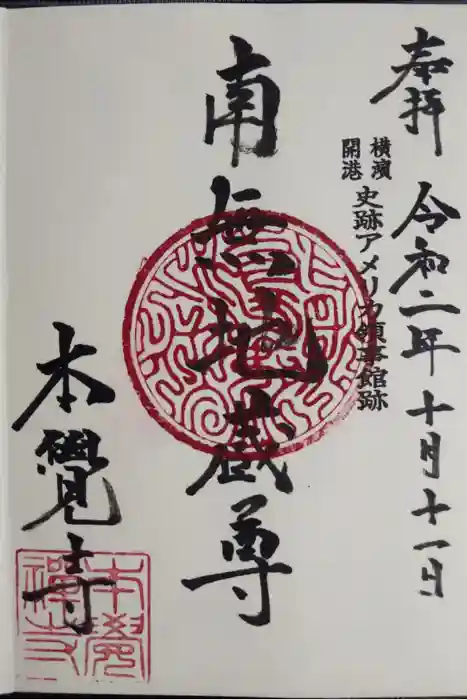 奉拝
令和二年十月十一日
横濱
開港
史跡アメリカ領事館跡
南無地蔵尊
本覺寺
本覺
禅寺